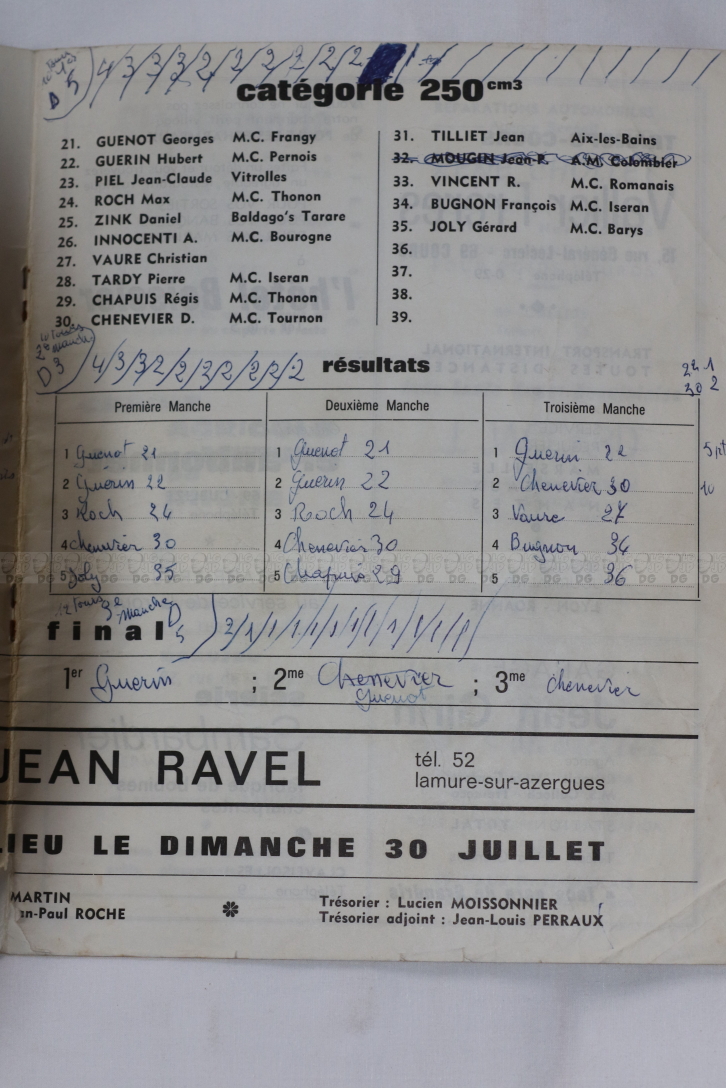 4/3/3/3/2/2/2/2/2/2/2
D 5
catégorie 250 cm3
21. GUENOT Georges M.C. Frangy
22. GUERIN Hubert M.C. Pernois
23. PIEL Jean-Claude Vitrolles
24. ROCH Max M.C. Thonon
25. ZINK Daniel Baldago's Tarare
26. INNOCENTI A. M.C. Bourogne
27. VAURE Christian
28. TARDY Pierre M.C. Iseran
29. CHAPUIS Régis M.C. Thonon
30. CHENEVIER D. M.C. Tournon
31. TILLIET Jean Aix-les-Bains
32. MOUGIN Jean-P. A.M. Colombier
33. VINCENT R. M.C. Romanais
34. BUGNON François M.C. Iseran
35. JOLY Gérard M.C. Barys
36.
37.
38.
39.
2e manche
D 3
4/3/3/2/2/2/2/2/2/2
résultats
22 1
30 2
Première Manche
1 Guenot 21
2 Guérin 22
3 Roch 24
4 Chenevier 30
5 Joly 35
Deuxième Manche
1 Guenot 21
2 Guerin 22
3 Roch 24
4 Chenevier 30
5 Chapuis 29
Troisième Manche
1 Guerin 22
2 Chenevier 30
3 Vaure 27
4 Bugnon 34
5 36
10
DG
12 Tours 3e Manche D 5
final
1er Guerin ; 2me Chenevier ; 3me Chenevier
Guenot
JEAN RAVEL
tél. 52
lamure-sur-azergues
IEU LE DIMANCHE 30 JUILLET
MARTIN
n-Paul ROCHE
Trésorier : Lucien MOISSONNIER
Trésorier adjoint : Jean-Louis PERRAUX